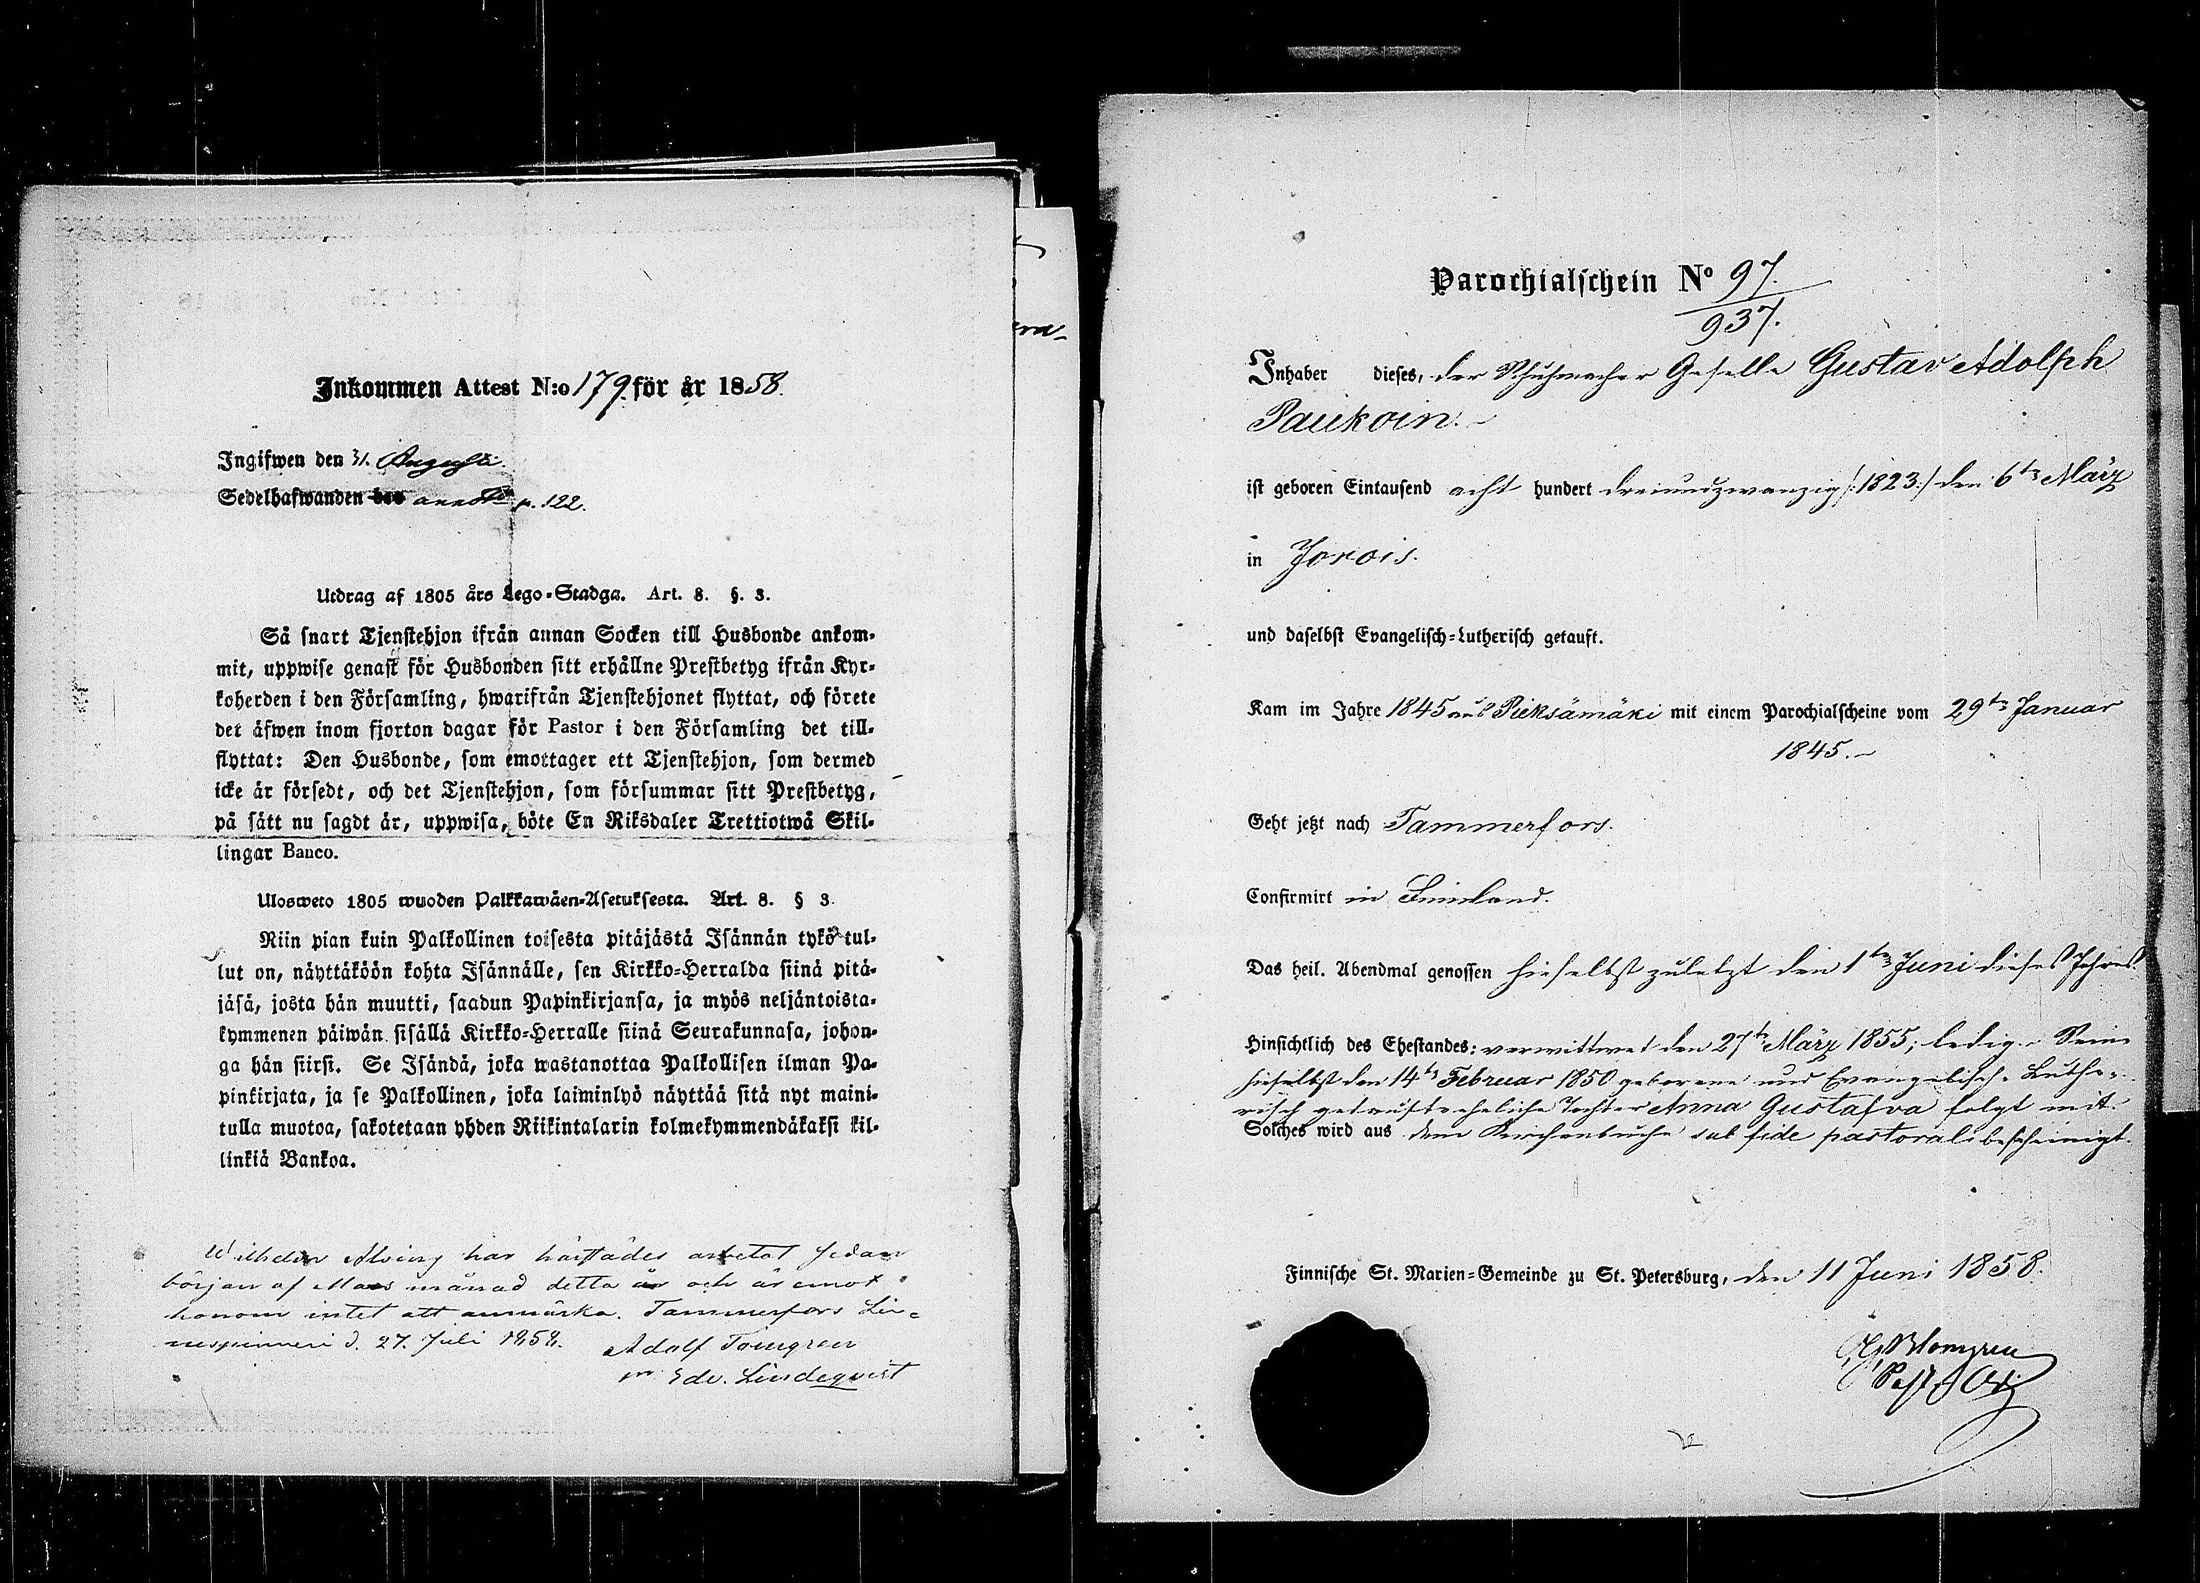 Inkommen Attest N:o 179 för år 1858.
Ingifwen den 31. Augusti.
Sedelhafwanden p. 122.
Utdrag af 1805 års Lego-Stadga. Art. 8. §. 3.
Så snart Tjenstehjon ifrån annan Socken till Husbonde ankom-
mit, uppwise genast för Husbonden sitt erhållne Prestbetyg ifrån Kyr-
koherden i den Församling, hwarifrån Tjenstehjonet flyttat, och förete
det äfwen inom fjorton dagar för Pastor i den Församling det till-
flyttat: Den Husbonde, som emottager ett Tjenstehjon, som dermed
icke är försedt, och det Tjenstehjon, som försummar sitt Prestbetyg,
på sätt nu sagdt är, uppwisa, böte En Riksdaler Trettiotwå Skil-
lingar Banco.
Ulosweto 1805 wuoden Palkkawäen-Asetuksesta. Art. 8. § 3.
Niin pian kuin Palkollinen toisesta pitäjästä Isännän tykö tul-
lut on, näyttäköön kohta Isännälle, sen Kirkko-Herralda siinä pitä-
jäsä, josta hän muutti, saadun Papinkirjansa, ja myös neljäntoista-
kymmenen päiwän sisällä Kirkko-Herralle siinä Seurakunnasa, johon-
ga hän siirsi. Se Isändä, joka wastanottaa Palkollisen ilman Pa-
pinkirjata, ja se Palkollinen, joka laiminlyö näyttää sitä nyt maini-
tulla muotoa, sakotetaan yhden Riikintalarin kolmekymmendäkaksi kil-
linkiä Bankoa.
Wilhelm Alving har härstädes arbetat sedan
början af Mars månad detta år och är emot
honom intet att anmärka. Tammerfors Lin-
nespinneri d. 27. Juli 1858. Adolf Törngren
pr Edv. Lindeqvist
Parochialschein No 97.
937.
Inhaber dieses, der Schuhmacher Geselle Gustav Adolph
Paukoin.
ist geboren Eintausend acht hundert dreiundzwanzig /:1823:/ den 6ten März
in Jorois.
und daselbst Evangelisch-Lutherisch getauft.
Kam im Jahre 1845 aus Pieksämäki mit einem Parochialscheine vom 29ten Januar
1845.
Geht jetzt nach Tammerfors.
Confirmirt in Finnland.
Das heil. Abendmal genossen hieselbst zuletzt den 1ten Juni dieses Jahres.
Hinsichtlich des Ehestandes: verwittwet den 27ten März 1855; ledig. Seine
hieselbst den 14ten Februar 1850 geborene und Evangelisch-Luthe-
risch getaufte eheliche Tochter Anna Gustafva folgt mit.
Solches wird aus dem Kirchenbuche sub fide pastorali bescheinigt.
Finnische St. Marien-Gemeinde zu St. Petersburg, den 11 Juni 1858.
Blomgren